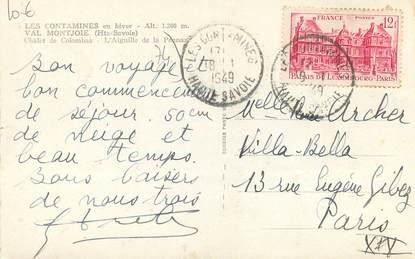 10€
LES CONTAMINES en hiver - Alt. 1.200 m.
VAL MONTJOIE (Hte-Savoie)
Chalet de Colombaz - L'Aiguille de la
Bon voyage
bon commencement
de séjour. 50cm
de neige et
beau temps.
Bons baisers
de nous trois
LES CONTAMINES
18
1949
HAUTE SAVOIE
FRANCE POSTES 12F
PALAIS DU LUXEMBOURG-PARIS
Melle Archer
Villa-Bella
13 rue Eugène Gibez
Paris
XV